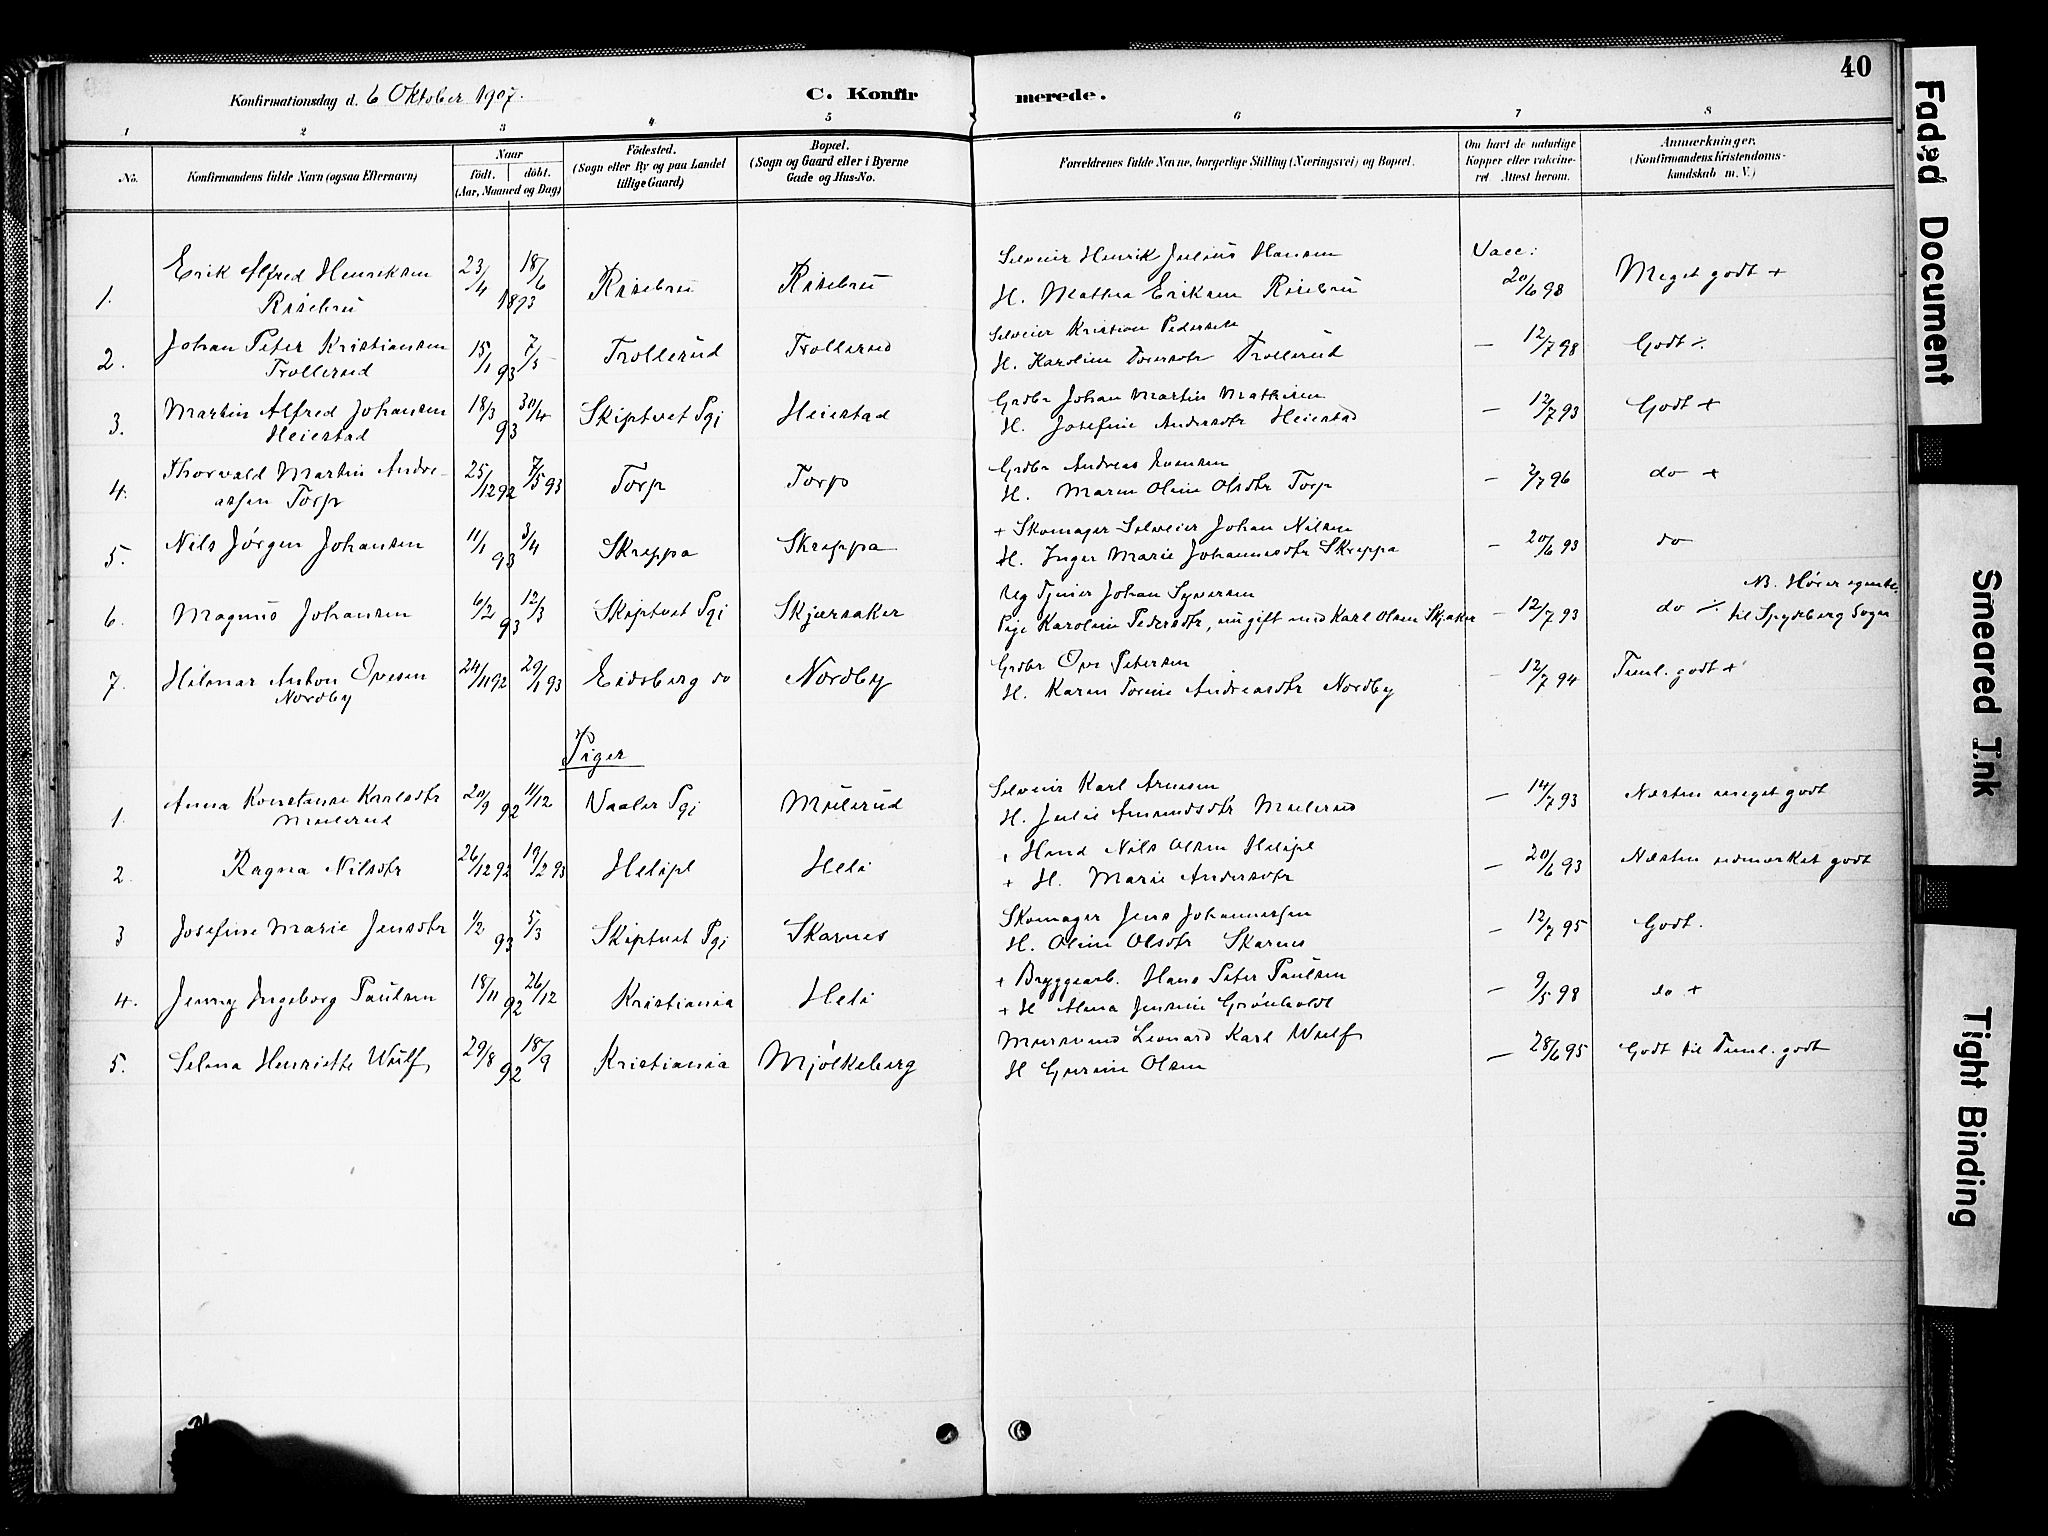 40
Konfirmationsdag d. 6 Oktober 1907.
C. Konfirmerede.
1 2 3 4 5 6 7 8
No.
Konfirmandens fulde Navn (ogsaa Efternavn)
Naar
födt. döbt.
(Aar, Maaned og Dag)
Födested.
(Sogn eller By og paa Landet
tillige Gaard)
Bopæl.
(Sogn og Gaard eller i Byerne
Gade og Hus-No.
Forældrenes fulde Navne, borgerlige Stilling (Næringsvei) og Bopæl.
Om havt de naturlige
Kopper eller vakcine-
ret. Attest herom.
Anmærkninger,
(Konfirmandens Kristendoms-
kundskab m. V.)
Erik Alfred Henriksen 23/4 18/6 Selveier Henrik Julius Hansen Vacc:
1. Risebru 1893 Risebru Risebru H. Mathea Eriksen Risebru 20/6 98 Meget godt +
Johan Peter Kristiansen 15/1 7/5 Selveier Kristian Pedersen
2. Trollerud 93 Trollerud Trollerud H. Karoline Trollerud — 12/7 98 Godt ÷
Martin Alfred Johansen 18/3 30/4 Grdbr Johan Martin Mathisen
3. Heiestad 93 Skiptvet Pgj Heiestad H. Josefine Andersdtr Heiestad — 12/7 93 Godt +
Thorvald Martin Andre- 25/12 92 7/5 93 Grdbr Andreas
4. assen Torp Torp Torp H. Maren Oline Olsdtr Torp — 2/7 96 do +
Nils Jørgen Johansen 11/1 3/4 + Skomager Selveier Johan Nilsen
5. 93 Skreppa Skreppa H. Inger Marie Johannesdtr Skreppa — 20/6 93 do
6. Magnus Johansen 6/2 12/3 93 Skiptvet Pgj Skjæraker Ug Tjener Johan Syversen NB. Hører egentl.
Pige Karoline Pedersdtr, nu gift med Karl Olsen Skjaker — 12/7 93 do ÷ til Spydeberg Sogn
7. Hilmar Anton Ovesen 24/11 92 29/1 93 Eidsberg do Nordby Grdbr Ove Petersen
Nordby H. Karen Torine Andreasdtr Nordby — 12/7 94 Teml. godt +
Piger
Anna Konstanse Karlsdtr 20/9 11/12 Selveier Karl Arnesen
1. Mulerud 92 Vaaler Pgj Mulerud H. Julie Amundsdtr Mulerud — 14/7 93 Næsten meget godt
2. Ragna Nilsdtr 26/12 92 19/2 93 Helipl Heli + Hmd Nils Olsen Helipl
+ H. Marie Andersdtr — 20/6 93 Næsten udmerket godt
3 Josefine Marie Jensdtr 1/2 5/3 93 Skiptvet Pgj Skarnes Skomager Jens Johannessen
H. Oline Olsdtr Skarnes — 12/7 95 Godt.
4. Jenny Ingeborg Paulsen 18/11 26/12 92 Kristiania Heli + Bryggearb. Hans Peter Paulsen
+ H Alma Jensine Grönholdt — 9/5 98 do +
5. Selma Henriette Wulf 29/8 18/9 92 Kristiania Mjölkeberg Mursvend Leonard Karl Wulf
H Gurine Olsen — 28/6 95 Godt til Teml. godt
Faded Document
Smeared Ink
Tight Binding